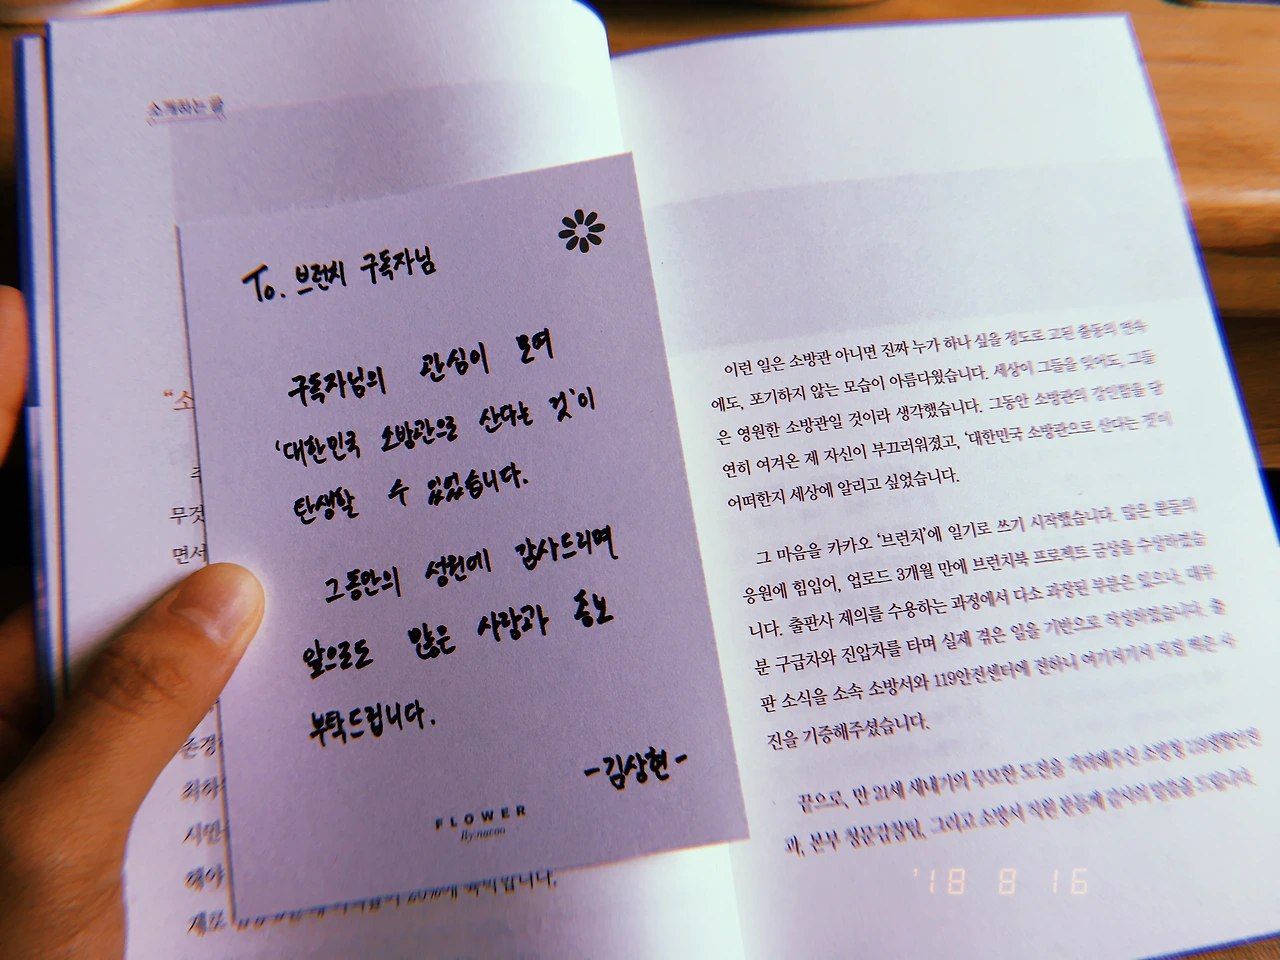 소개하는 글
"소
주
무것
면서
존경
최하
시민
해야
제로
To. 브런치 구독자님
구독자님의 관심이 모여
'대한민국 소방관으로 산다는 것'이
탄생할 수 있었습니다.
그동안의 성원에 감사드리며
앞으로도 많은 사랑과 홍보
부탁드립니다.
-김상현-
FLOWER
By.nacoo
이런 일은 소방관 아니면 진짜 누가 하나 싶을 정도로 고된 출동의 연속
에도, 포기하지 않는 모습이 아름다웠습니다. 세상이 그들을 잊어도, 그들
은 영원한 소방관일 것이라 생각했습니다. 그동안 소방관의 강인함을 당
연히 여겨온 제 자신이 부끄러워졌고, '대한민국 소방관으로 산다는 것'이
어떠한지 세상에 알리고 싶었습니다.
그 마음을 카카오 '브런치'에 일기로 쓰기 시작했습니다. 많은 분들의
응원에 힘입어, 업로드 3개월 만에 브런치북 프로젝트 금상을 수상하였습
니다. 출판사 제의를 수용하는 과정에서 다소 과장된 부분은 있으나, 대부
분 구급차와 진압차를 타며 실제 겪은 일을 기반으로 작성하였습니다. 출
판 소식을 소속 소방서와 119안전센터에 전하니 여기저기서 직접 찍은 사
진을 기증해주셨습니다.
끝으로, 만 21세 새내기의 무모한 도전을 격려해주신 소방청 119생활안전
과, 본부 청문감찰팀, 그리고 소방서 직원 분들께 감사의 말씀을 드립니다.
'18 8 16